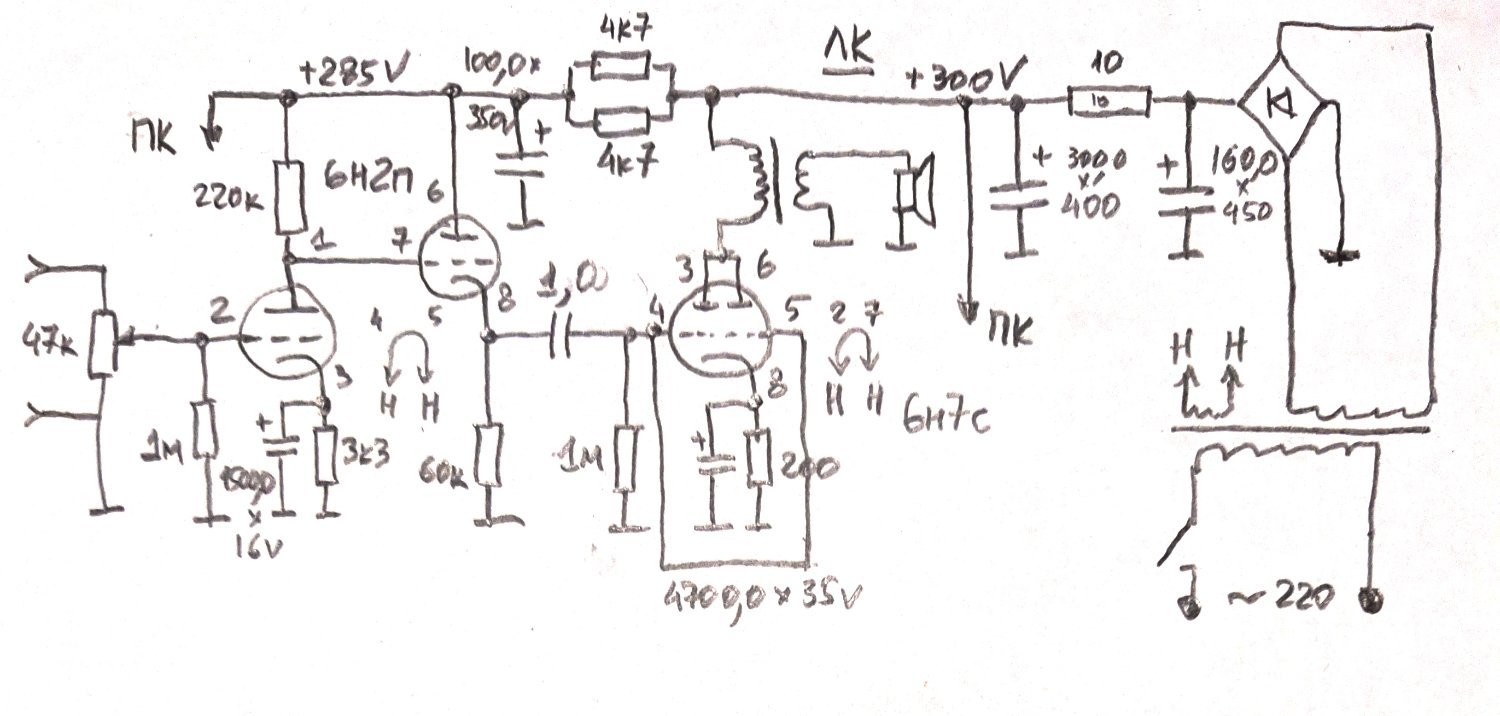 4к7
ЛК
+285V
100,0x
+300V
10
ПК
350v
+
4к7
10
220к
6н2п
6
+
300,0
x
400
+
160,0
x
450
1
7
3
6
8
1,0
2
4
5
2
7
ПК
47к
4
5
3
8
Н
Н
Н
Н
Н
Н
6н7с
1м
+
3к3
60к
1м
+
200
1500,0
x
16V
4700,0 x 35V
~ 220